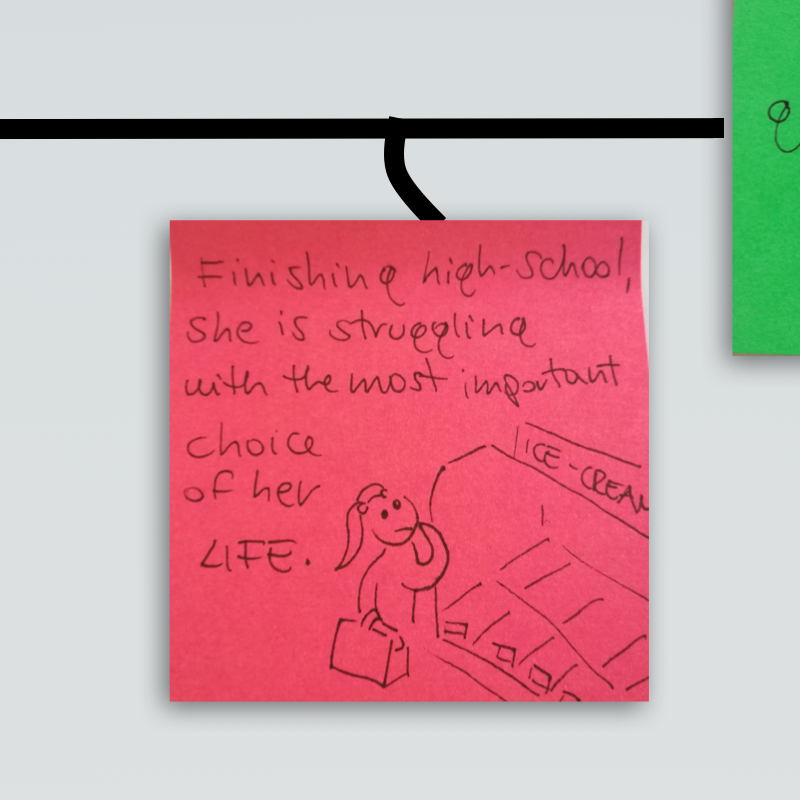 Finishing high-school,
she is struggling
with the most important
choice
of her
LIFE.
ICE-CREAM